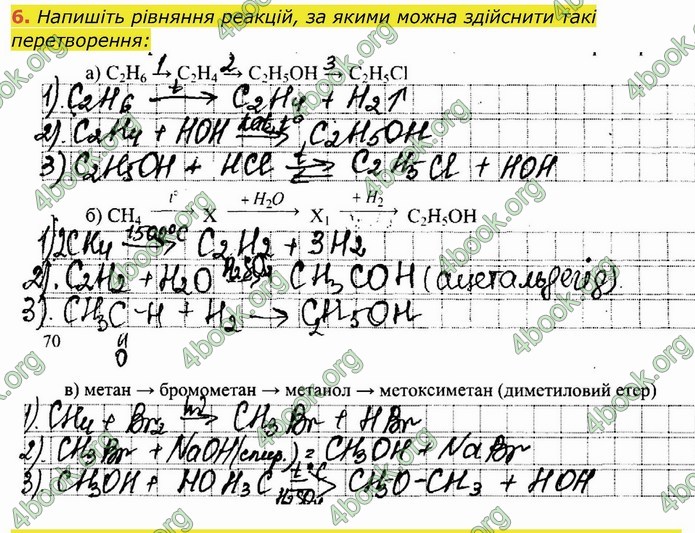 6. Напишіть рівняння реакцій, за якими можна здійснити такі
перетворення:
а) C₂H₆ →¹ C₂H₄ →² C₂H₅OH →³ C₂H₅Cl
1). C₂H₆ →ᵗ C₂H₄ + H₂↑
2). C₂H₄ + HOH →ᵏᵃᵗ, ᵗ° C₂H₅OH
3) C₂H₅OH + HCl ⇄ C₂H₅Cl + HOH
б) CH₄ →ᵗ° X →⁺ᴴ²ᴼ X₁ →⁺ᴴ² C₂H₅OH
1) 2CH₄ →¹⁵⁰⁰°ᶜ C₂H₂ + 3H₂
2). C₂H₂ + H₂O → CH₃COH (ацетальдегід).
3). CH₃C-H + H₂ → C₂H₅OH
70
O
в) метан → бромометан → метанол → метоксиметан (диметиловий етер)
1). CH₄ + Br₂ →ʰᵛ CH₃Br + HBr
2). CH₃Br + NaOH(спир.) = CH₃OH + NaBr
3) CH₃OH + HOH₃C ⇄ CH₃O-CH₃ + HOH
t°C
H₂SO₄
4book.org